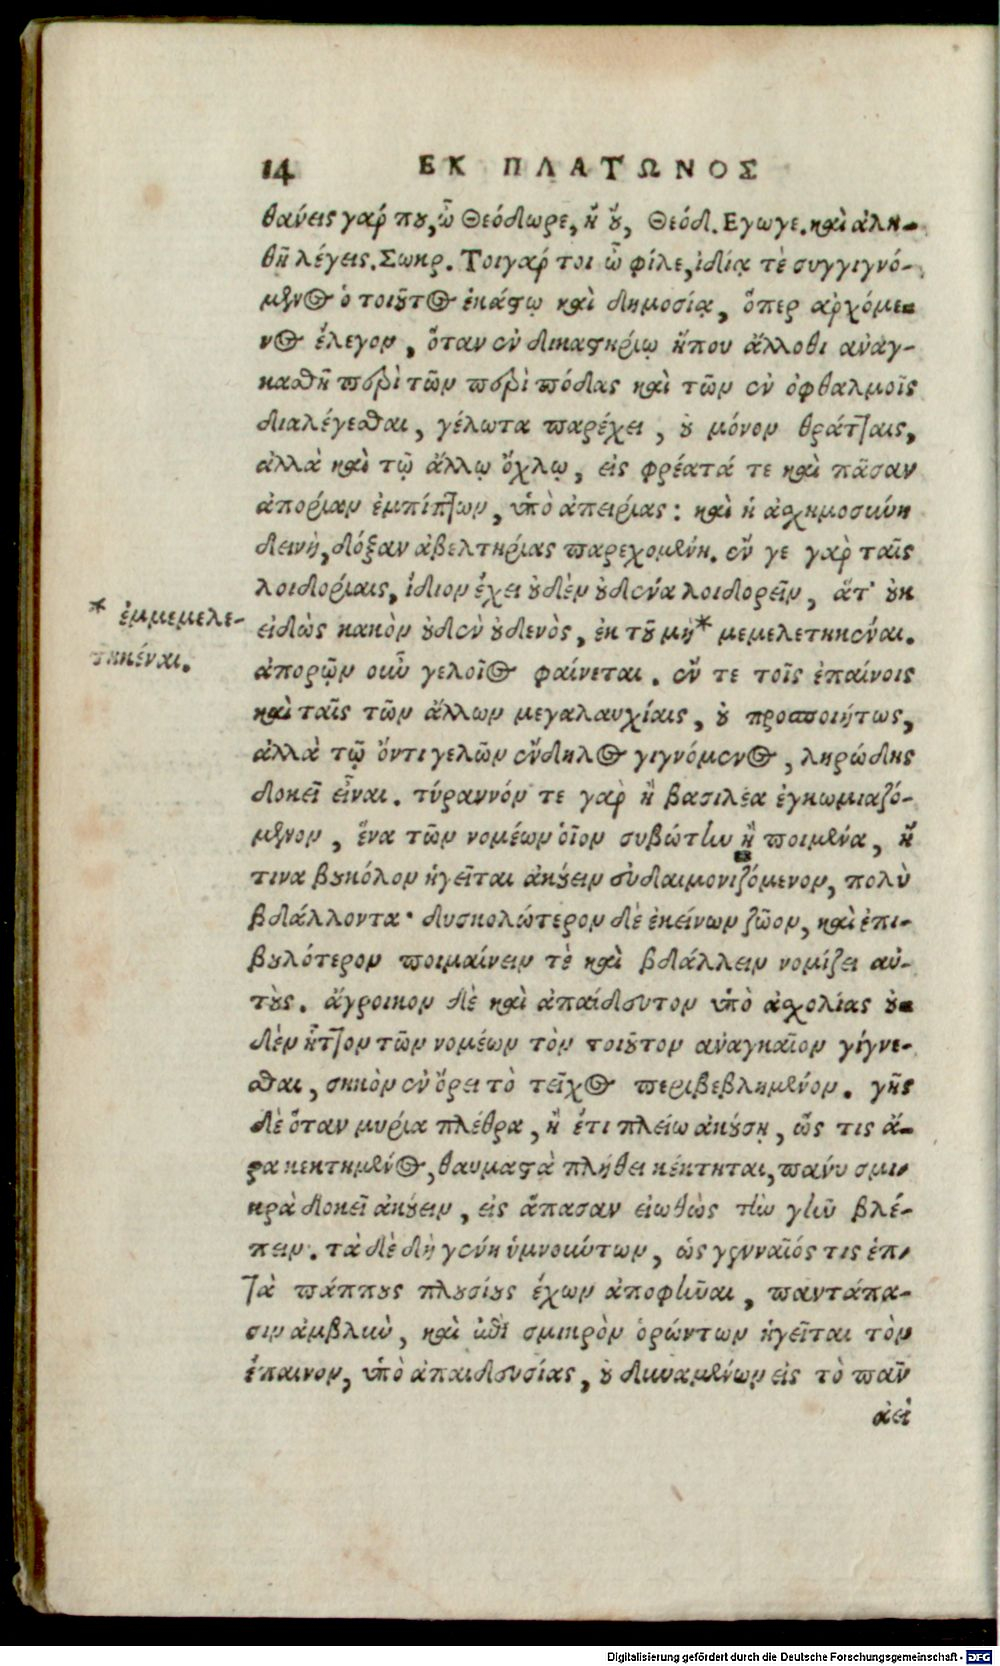 14 ΕΚ ΠΛΑΤΩΝΟΣ
θάνεις γάρ που, ὦ Θεόδωρε, ἢ οὔ, Θεόδ. Εγωγε. καὶ ἀλη-
θῆ λέγεις. Σωκρ. Τοιγάρ τοι ὦ φίλε, ἰδίᾳ τὲ συγγιγνό-
μενος ὁ τοιοῦτος ἑκάστῳ καὶ δημοσίᾳ, ὅπερ ἀρχόμε-
νος ἔλεγον, ὅταν ἐν δικαστηρίῳ ἤπου ἄλλοθι ἀναγ-
κασθῆ περὶ τῶν περὶ πόδας καὶ τῶν ἐν ὀφθαλμοῖς
διαλέγεσθαι, γέλωτα παρέχει, οὐ μόνον θράτταις,
ἀλλὰ καὶ τῷ ἄλλῳ ὄχλῳ, εἰς φρέατά τε καὶ πᾶσαν
ἀπορίαν ἐμπίπτων, ὑπὸ ἀπειρίας: καὶ ἡ ἀσχημοσύνη
δεινὴ, δόξαν ἀβελτηρίας παρεχομένη. ἔν γε γαρ ταῖς
λοιδορίαις, ἴδιον ἔχει οὐδὲν οὐδένα λοιδορεῖν, ἅτ' οὐκ
* ἐμμεμελε-
τηκέναι.
εἰδὼς κακὸν οὐδὲν οὐδενὸς, ἐκ τοῦ μὴ* μεμελετηκέναι.
ἀπορῶν οὖν γελοῖος φαίνεται. ἔν τε τοῖς ἐπαίνοις
καὶ ταῖς τῶν ἄλλων μεγαλαυχίαις, οὐ προσποιήτως,
ἀλλὰ τῷ ὄντι γελῶν ἔνδηλος γιγνόμενος, ληρώδης
δοκεῖ εἶναι. τύραννόν τε γαρ ἢ βασιλέα ἐγκωμιαζό-
μενον, ἕνα τῶν νομέων ὁῖον συβώτην ἢ ποιμένα, ἤ
τινα βουκόλον ἡγεῖται ἀκούειν εὐδαιμονιζόμενον, πολὺ
βδάλλοντα· δυσκολώτερον δὲ ἐκείνων ζῶον, καὶ ἐπι-
βουλότερον ποιμαίνειν τὲ καὶ βδάλλειν νομίζει αὐ-
τούς. ἄγροικον δὲ καὶ ἀπαίδευτον ὑπὸ ἀσχολίας οὐ-
δὲν ἧττον τῶν νομέων τὸν τοιοῦτον ἀναγκαῖον γίγνε-
σθαι, σηκὸν ἐν ὄρει τὸ τεῖχος περιβεβλημένον. γῆς
δὲ ὅταν μυρία πλέθρα, ἢ ἔτι πλείω ἀκούσῃ, ὥς τις ἄ-
ρα κεκτημένος, θαυμαστὰ πλήθει κέκτηται, πάνυ σμι-
κρὰ δοκεῖ ἀκούειν, εἰς ἅπασαν εἰωθὼς τὴν γῆν βλέ-
πειν. τὰ δὲ δὴ γένη ὑμνούντων, ὡς γενναῖός τις ἑπ-
τὰ πάππους πλουσίους ἔχων ἀποφῆναι, παντάπα-
σιν ἀμβλὺ, καὶ ἐπὶ σμικρὸν ὁρώντων ἡγεῖται τὸν
ἔπαινον, ὑπὸ ἀπαιδευσίας, οὐ δυναμένων εἰς τὸ πᾶν
ἀεὶ
Digitalisierung gefördert durch die Deutsche Forschungsgemeinschaft - DFG